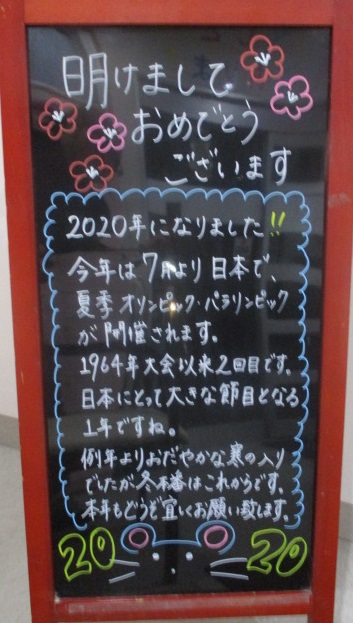 明けまして
おめでとう
ございます
2020年になりました!!
今年は7月より日本で、
夏季オリンピック・パラリンピック
が開催されます。
1964年大会以来2回目です。
日本にとって大きな節目となる
1年ですね。
例年よりおだやかな寒の入り
でしたが冬本番はこれからです。
本年もどうぞ宜しくお願い致します。
20 20